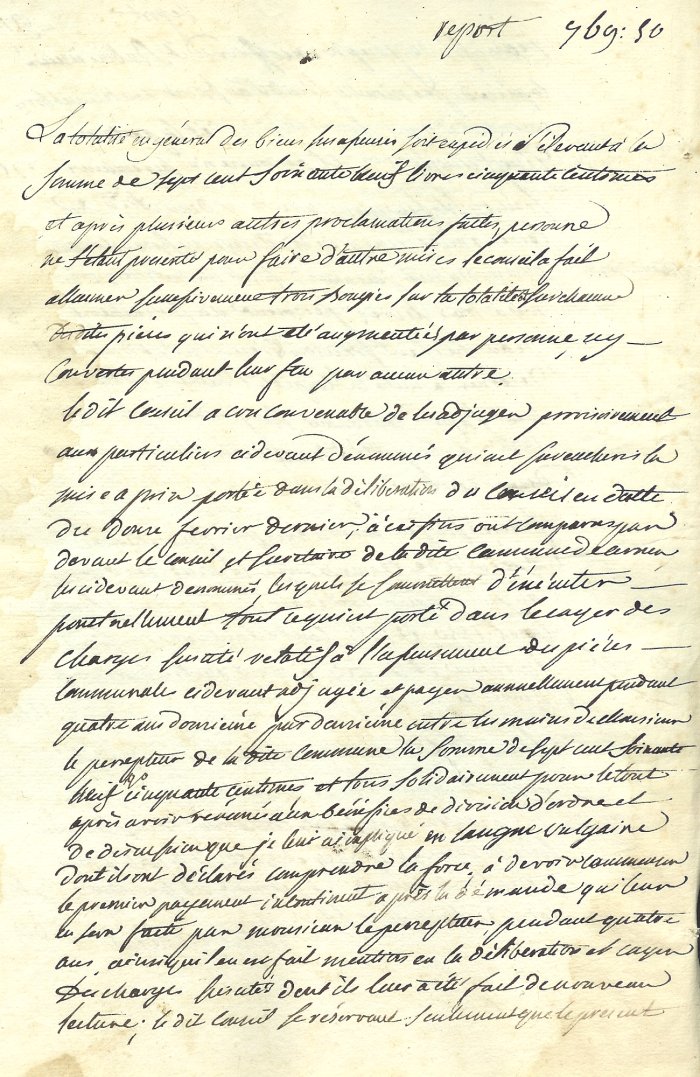 report 769: 50
La totalité en général des biens susapensés soit expédiés s'élevant à la
somme de sept cent soixante neuf livres cinquante centimes
et après plusieurs autres proclamations faites, personne
ne s'étant présenté pour faire d'autre mises le conseil a fait
allumer successivement trois bougies sur la totalité et sur chacune
desdites pièces qui n'ont été augmentées par personne, ny
couvertes pendant leur feu par aucun autre.
le dit Conseil a cru convenable de les adjuger provisoirement
aux particuliers cidevant dénommés qui ont surencheris la
mise a prix portée dans la déliberation du Conseil en datte
du douze fevrier dernier; à ces fins ont comparus par
devant le conseil et secretaire de la dite Commune de
les cidevant denommés, lesquels se soumettent d'éxécuter
ponctuellement tout ce qui est porté dans le cayer des
charges suscité relatif à l'
des pièces
communale cidevant adjugée et payer annuellement pendant
quatre ans douzième par douzième entre les mains de Monsieur
le percepteur de la dite Commune la somme de sept cent soixante
neuf cinquante centimes et tous solidairement pour le tout
après avoir renoncés aux bénéfices de division d'ordre et
de discussion que je leur ai expliqué en langue vulgaire
dont ils ont déclarés comprendre la force, à devoir commencer
le premier payement incontinent après la demande qui leur
en sera faite par monsieur le percepteur pendant quatre
ans ainsi qu'il en est fait mention en la déliberation et cayer
des charges suscités dont ils leur a été fait de nouveau
lecture; le dit Conseil se réservant seulement que le présent